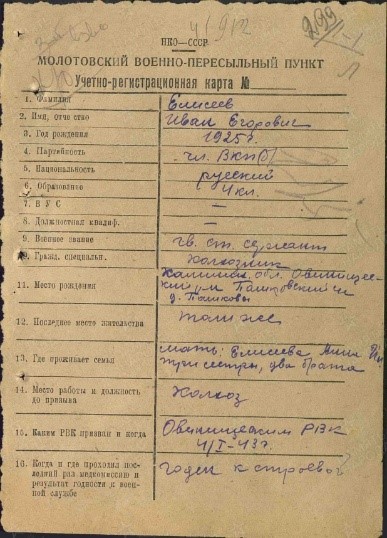 4/912
299
1-1
Л
НКО—СССР
МОЛОТОВСКИЙ ВОЕННО-ПЕРЕСЫЛЬНЫЙ ПУНКТ
Учетно-регистрационная карта №
1. Фамилия Елисеев
2. Имя, отчество Иван Егорович
3. Год рождения 1925 г.
4. Партийность чл. ВКП(б)
5. Национальность русский
6. Образование 4 кл.
7. В У С —
8. Должностная квалиф. —
9. Военное звание гв. ст. сержант
10. Гражд. специальн. Колхозник
11. Место рождения Калинин. обл. Овинищев-
ский р-н
д. Пашковы
12. Последнее место жительства там же
13. Где проживает семья мать: Елисеева
три сестры, два брата
14. Место работы и должность до призыва Колхоз
15. Каким РВК призван и когда Овинищевским РВК
4/I-43 г.
16. Когда и где проходил последний раз медкомиссию и результат годности к военной службе годен к строевой